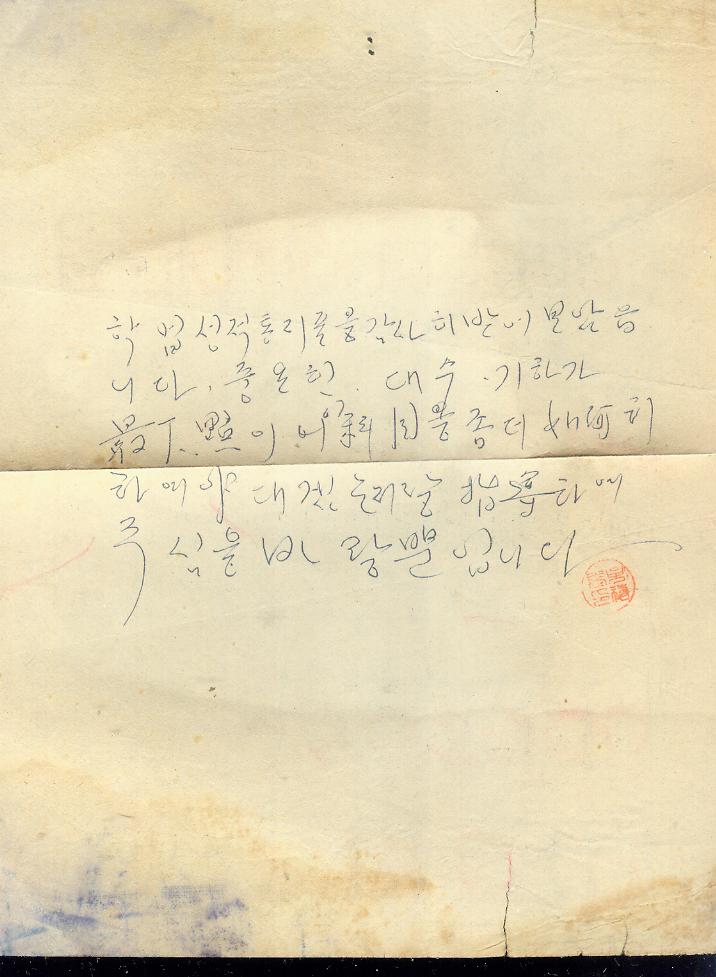 학 업성적통지표를감사히받어보앗읍
니다. 중요한. 대수. 기하가
最下點이 科目을좀더如何히
하여야 대겠는지를 指導하여
주심을 바랄뿐입니다